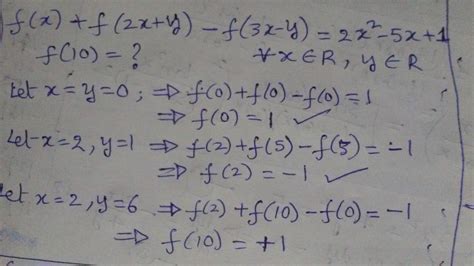 f(x) + f(2x+y) - f(3x-y) = 2x² - 5x + 1
f(10) = ? ∀ x ∈ R, y ∈ R
Let x = y = 0 ; ⇒ f(0) + f(0) - f(0) = 1
⇒ f(0) = 1 ✓
Let x = 2, y = 1 ⇒ f(2) + f(5) - f(5) = -1
⇒ f(2) = -1 ✓
Let x = 2, y = 6 ⇒ f(2) + f(10) - f(0) = -1
⇒ f(10) = +1